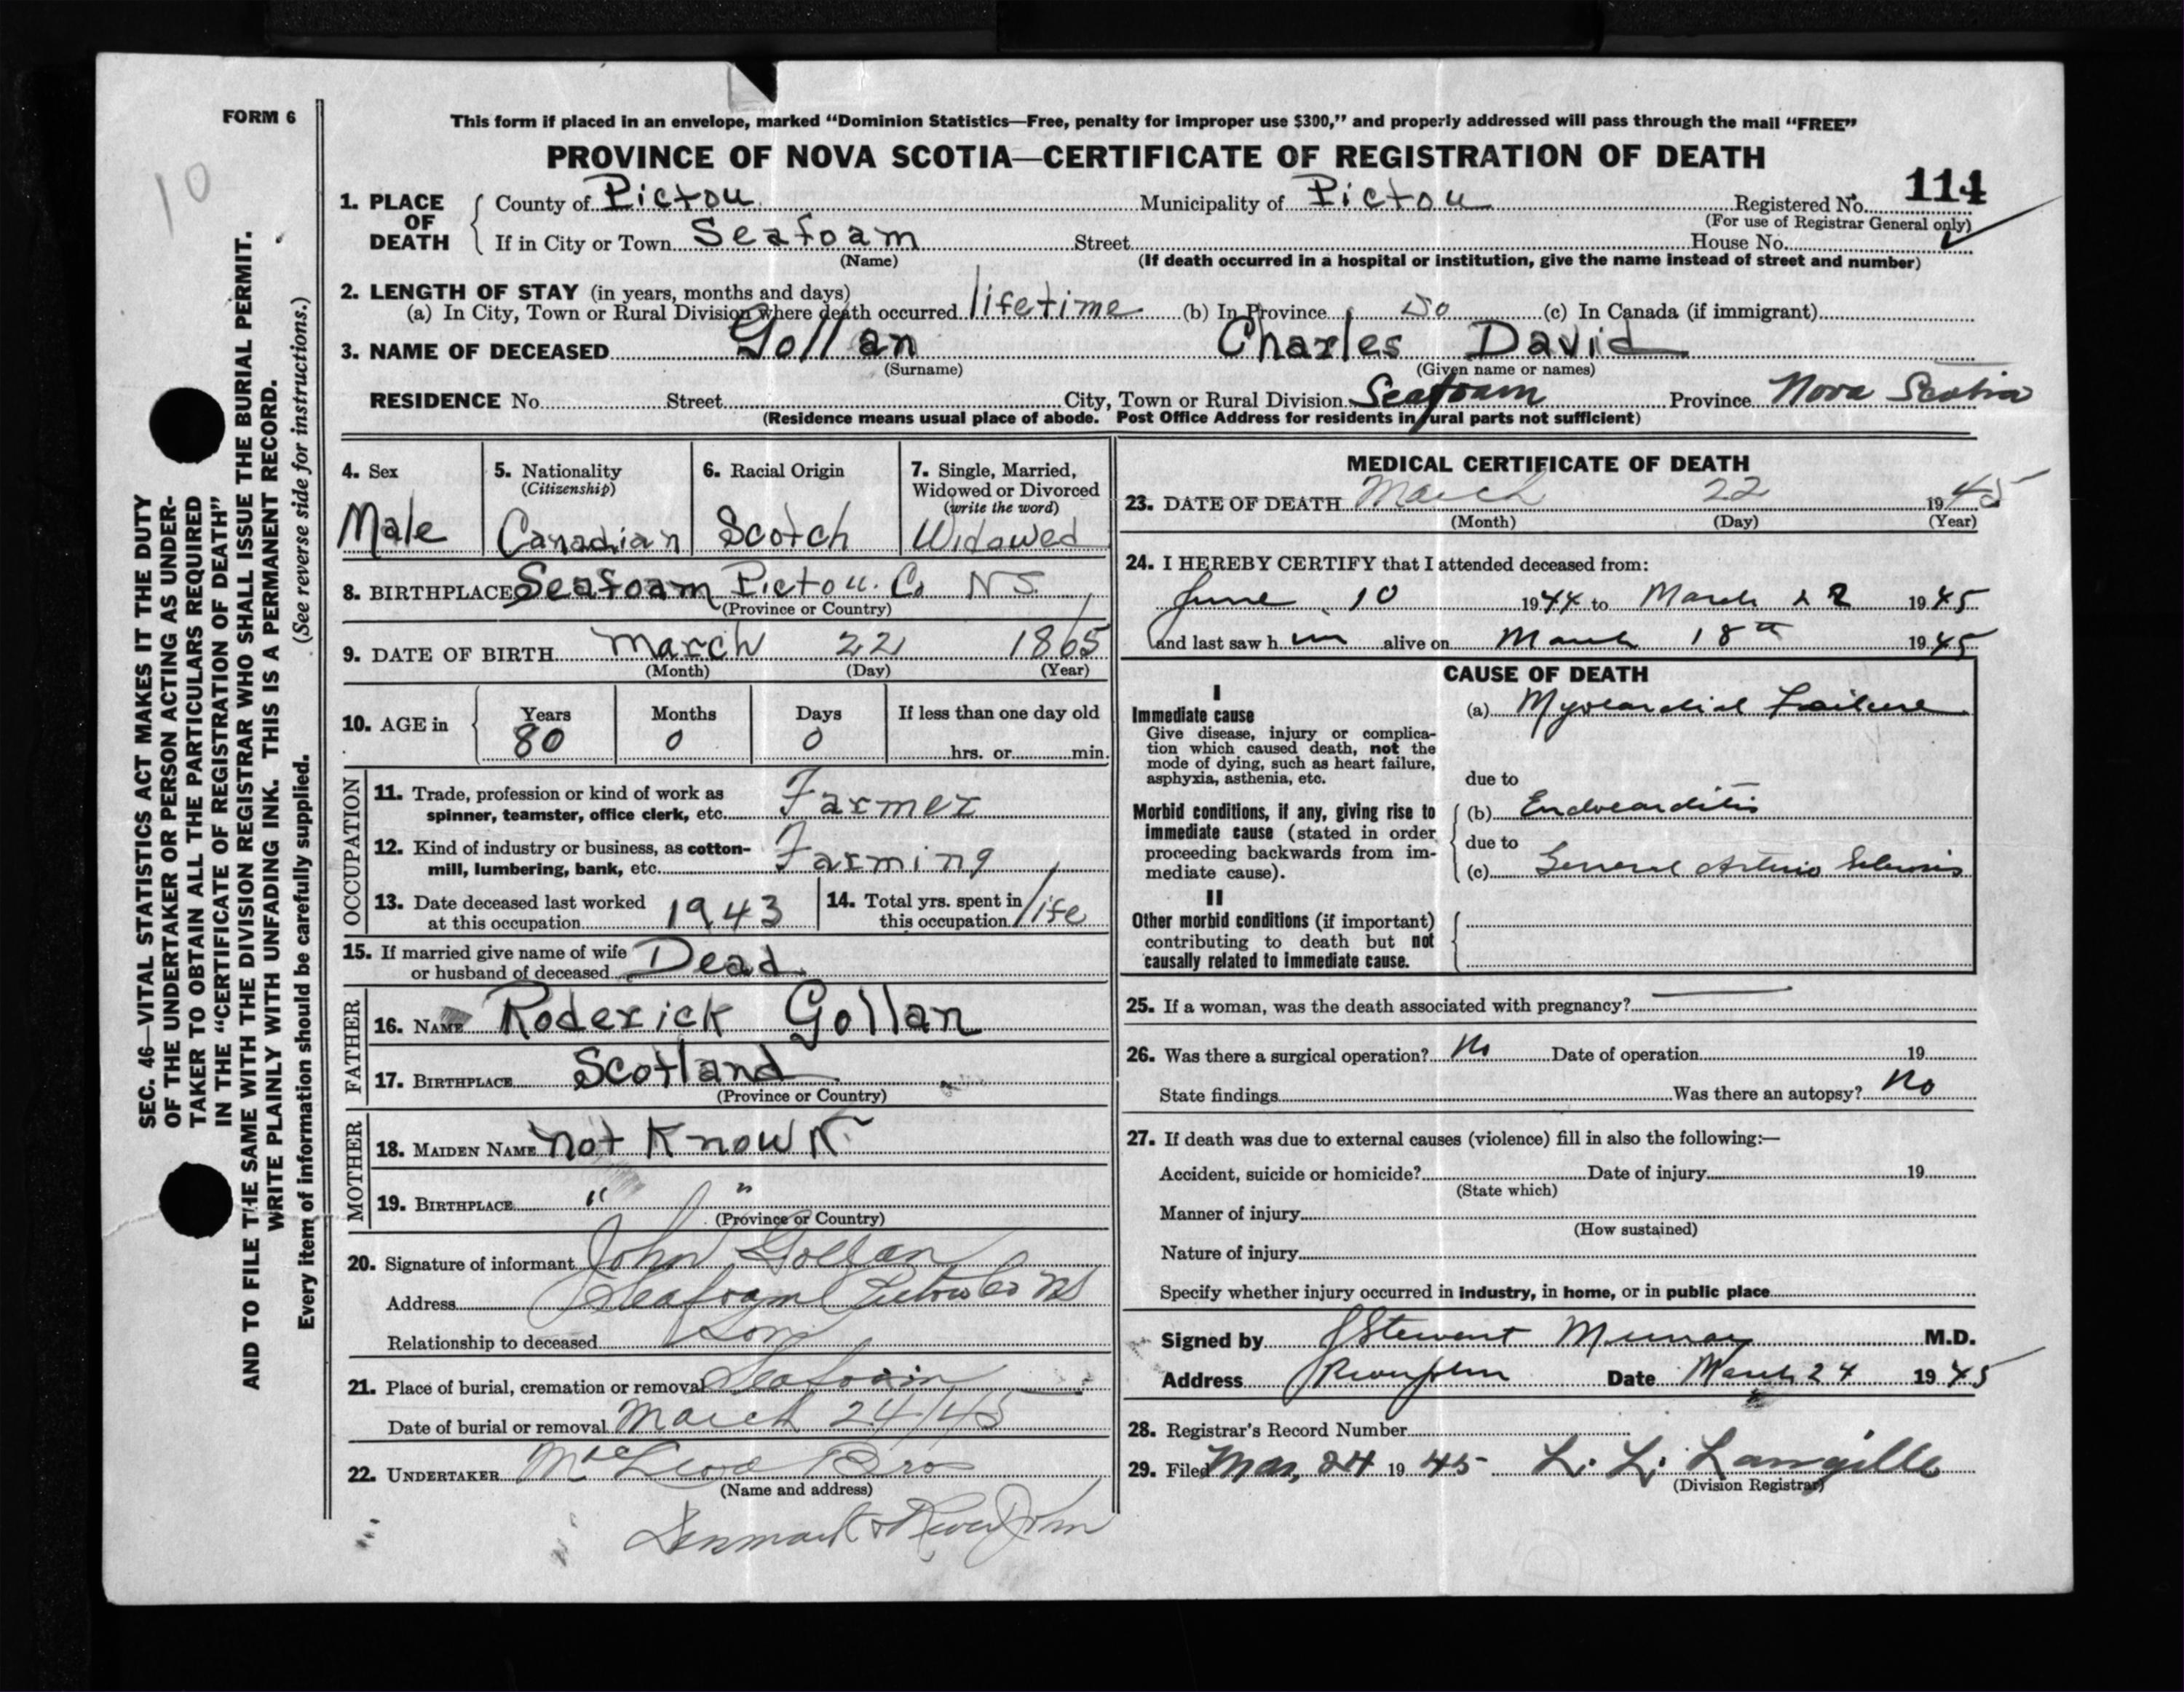 FORM 6
10
SEC. 46—VITAL STATISTICS ACT MAKES IT THE DUTY
OF THE UNDERTAKER OR PERSON ACTING AS UNDER-
TAKER TO OBTAIN ALL THE PARTICULARS REQUIRED
IN THE "CERTIFICATE OF REGISTRATION OF DEATH"
AND TO FILE THE SAME WITH THE DIVISION REGISTRAR WHO SHALL ISSUE THE BURIAL PERMIT.
WRITE PLAINLY WITH UNFADING INK. THIS IS A PERMANENT RECORD.
Every item of information should be carefully supplied. (See reverse side for instructions.)
This form if placed in an envelope, marked "Dominion Statistics—Free, penalty for improper use $300," and properly addressed will pass through the mail "FREE"
PROVINCE OF NOVA SCOTIA—CERTIFICATE OF REGISTRATION OF DEATH
1. PLACE OF DEATH County of Pictou Municipality of Pictou Registered No. 114
(For use of Registrar General only)
If in City or Town Seafoam Street House No.
(Name) (If death occurred in a hospital or institution, give the name instead of street and number)
2. LENGTH OF STAY (in years, months and days)
(a) In City, Town or Rural Division where death occurred lifetime (b) In Province Do (c) In Canada (if immigrant)
3. NAME OF DECEASED Gollan Charles David
(Surname) (Given name or names)
RESIDENCE No. Street City, Town or Rural Division Seafoam Province Nova Scotia
(Residence means usual place of abode. Post Office Address for residents in rural parts not sufficient)
4. Sex
Male
5. Nationality
(Citizenship)
Canadian
6. Racial Origin
Scotch
7. Single, Married,
Widowed or Divorced
(write the word)
Widowed
8. BIRTHPLACE Seafoam Pictou. Co NS.
(Province or Country)
9. DATE OF BIRTH March 22 1865
(Month) (Day) (Year)
10. AGE in
Years Months Days If less than one day old
80 0 0 hrs. or min.
OCCUPATION
11. Trade, profession or kind of work as
spinner, teamster, office clerk, etc. Farmer
12. Kind of industry or business, as cotton-
mill, lumbering, bank, etc. Farming
13. Date deceased last worked
at this occupation 1943
14. Total yrs. spent in
this occupation life
15. If married give name of wife
or husband of deceased Dead
FATHER
16. NAME Roderick Gollan
17. BIRTHPLACE Scotland
(Province or Country)
MOTHER
18. MAIDEN NAME not Known
19. BIRTHPLACE " "
(Province or Country)
20. Signature of informant John Gollan
Address Seafoam Pictou Co NS
Relationship to deceased Son
21. Place of burial, cremation or removal Seafoam
Date of burial or removal March 24/45
22. UNDERTAKER MacLeod Bros
(Name and address)
Denmark & River John
MEDICAL CERTIFICATE OF DEATH
23. DATE OF DEATH March 22 1945
(Month) (Day) (Year)
24. I HEREBY CERTIFY that I attended deceased from:
June 10 1944 to March 22 1945
and last saw h im alive on March 18th 1945
CAUSE OF DEATH
I
Immediate cause
Give disease, injury or complica-
tion which caused death, not the
mode of dying, such as heart failure,
asphyxia, asthenia, etc.
(a) Myocardial Failure
due to
Morbid conditions, if any, giving rise to
immediate cause (stated in order
proceeding backwards from im-
mediate cause).
(b) Endocarditis
due to
(c) General Arterio Sclerosis
II
Other morbid conditions (if important)
contributing to death but not
causally related to immediate cause.
25. If a woman, was the death associated with pregnancy?
26. Was there a surgical operation? No Date of operation 19
State findings Was there an autopsy? No
27. If death was due to external causes (violence) fill in also the following:—
Accident, suicide or homicide? Date of injury 19
(State which)
Manner of injury
(How sustained)
Nature of injury
Specify whether injury occurred in industry, in home, or in public place
Signed by J Stewart Murray M.D.
Address River John Date March 24 1945
28. Registrar's Record Number
29. Filed Mar, 24 1945 L. L. Langille
(Division Registrar)